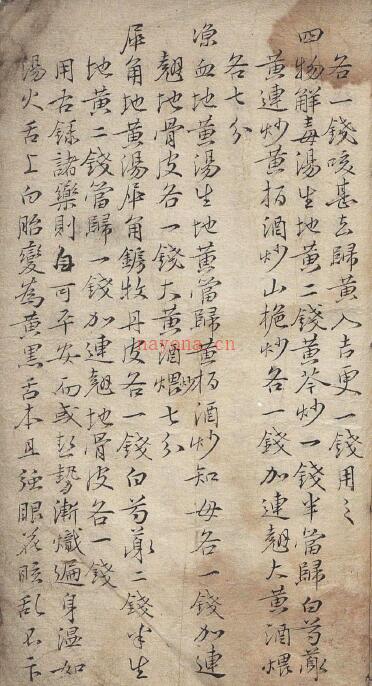 各一錢咳甚去歸黃入吉更一錢用之
四物解毒湯生地黃二錢黃芩炒一錢半當歸白芍藥
黃連炒黃栢酒炒山梔炒各一錢加連翹大黃酒煨
各七分
凉血地黃湯生地黃當歸黃栢酒炒知母各一錢加連
翹地骨皮各一錢大黃酒煨七分
犀角地黃湯犀角鎊牧丹皮各一錢白芍藥二錢半生
地黃二錢當歸一錢加連翹地骨皮各一錢
用古諸藥則自可平安而或熱勢漸熾遍身溫如
湯火舌上白胎變為黃黑舌本且強眼花眩乱不下
nayona.cn